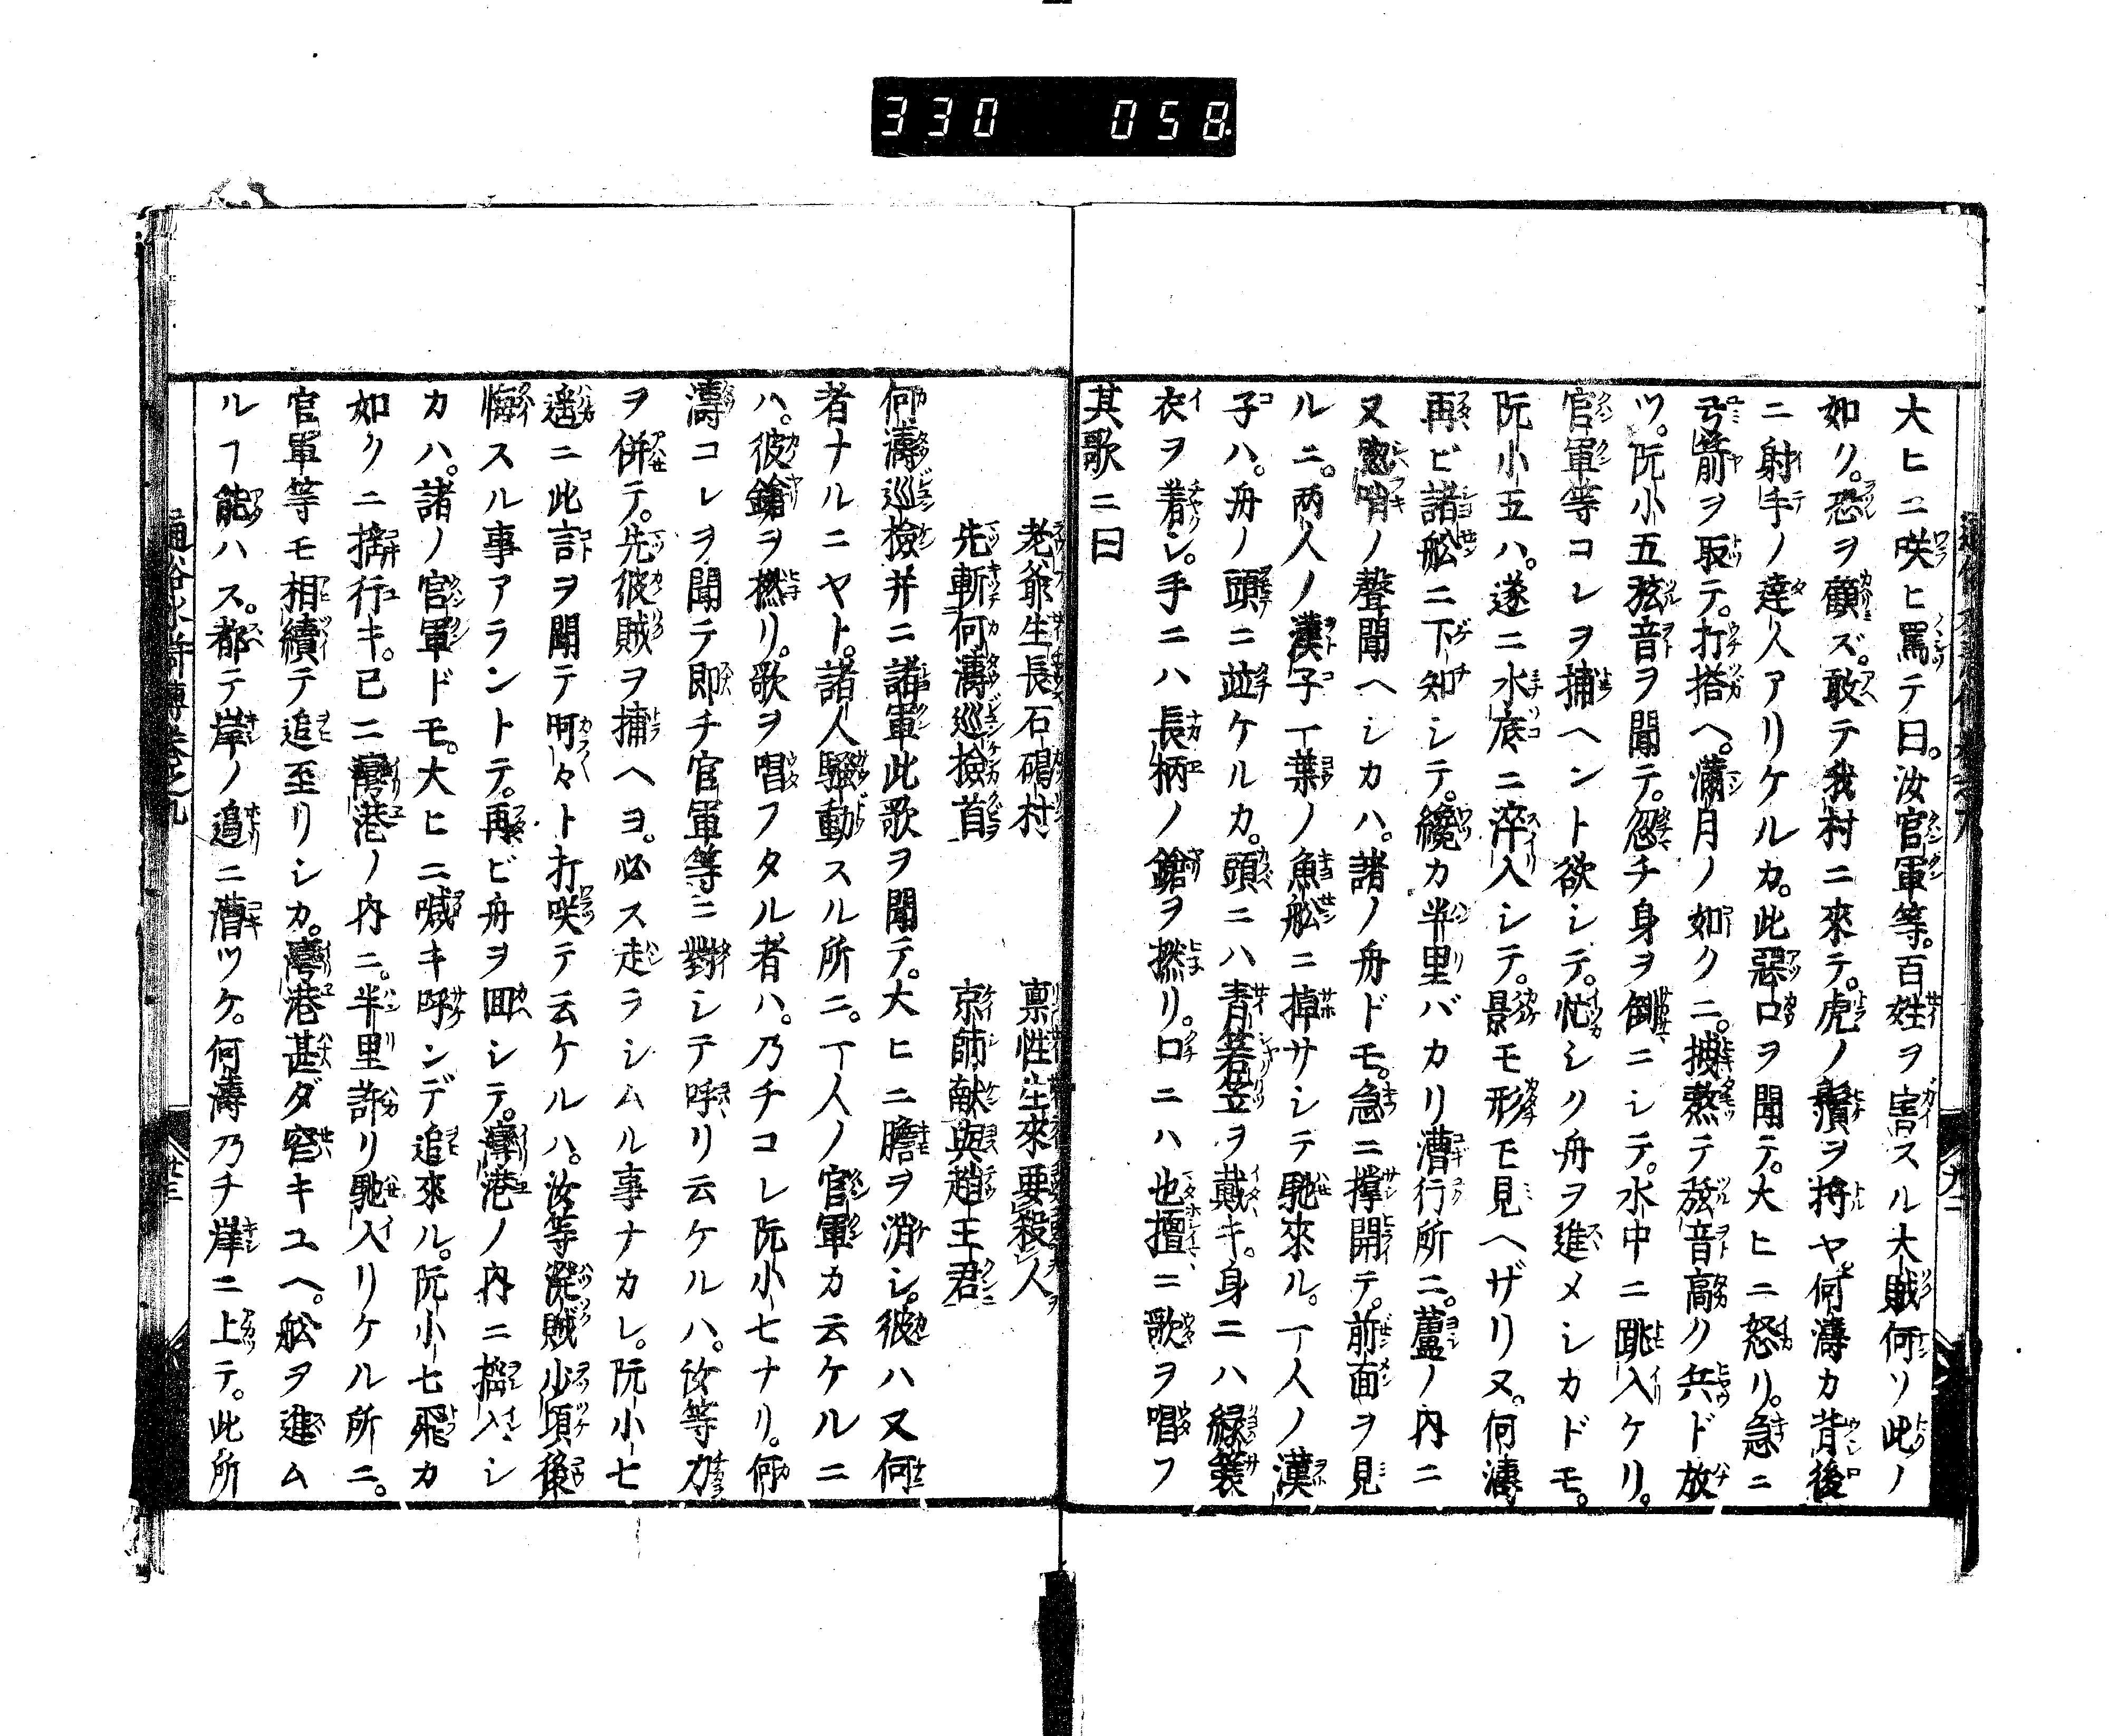 330 058
大ヒニ咲ヒ罵テ曰。汝官軍等。百姓ヲ害スル大賊何ソ此ノ
如リ。恐ヲ顧ズ。敢テ我村ニ來テ。虎ノ鬚ヲ捋ヤ。何濤カ背後
ニ射手ノ達人アリケルカ。此惡口ヲ聞テ。大ヒニ怒リ。急ニ
弓箭ヲ取テ。打搭ヘ。滿月ノ如クニ。拽熬テ弦音高ク兵ド放
ツ。阮小五弦音ヲ聞テ。忽チ身ヲ倒ニシテ。水中ニ跳入ケリ。
官軍等コレヲ捕ヘント欲シテ。忙シク舟ヲ進メシカドモ。
阮小五ハ。遂ニ水底ニ淬入シテ。影モ形モ見ヘザリヌ。何濤
再ビ諸舩ニ下知シテ。纔カ半里バカリ漕行所ニ。蘆ノ内ニ
又唿哨ノ聲聞ヘシカハ。諸ノ舟ドモ。急ニ撑開テ。前面ヲ見
ルニ。两人ノ漢子一葉ノ魚舩ニ棹サシテ馳來ル。一人ノ漢
子ハ。舟ノ頭ニ竝ケルカ。頭ニハ青箬笠ヲ戴キ。身ニハ緑簑
衣ヲ着シ。手ニハ長柄ノ鎗ヲ撚リ。口ニハ也擅ニ歌ヲ唱フ
其歌ニ曰
老爺生長石碣村 禀性生來要殺人
先斬何濤巡撿首 京師献與趙王君
何濤巡撿并ニ諸軍此歌ヲ聞テ。大ヒニ膽ヲ消シ。彼ハ又何
者ナルニヤト。諸人騒動スル所ニ。一人ノ官軍カ云ケルニ
ハ。彼鎗ヲ撚リ。歌ヲ唱フタル者ハ。乃チコレ阮小七ナリ。何
濤コレヲ聞テ即チ官軍等ニ對シテ呼リ云ケルハ。汝等力
ヲ併テ。先彼賊ヲ捕ヘヨ。必ス走ラシムル事ナカレ。阮小七
遥ニ此言ヲ聞テ呵々ト打咲テ云ケルハ。汝等潑賊少頃後
悔スル事アラントテ。再ビ舟ヲ囬シテ。灣港ノ内ニ搊入シ
カハ。諸ノ官軍ドモ。大ヒニ喊キ呼ンデ追來ル。阮小七飛カ
如クニ搊行キ。已ニ灣港ノ内ニ。半里許リ馳入リケル所ニ。
官軍等モ相續テ追至リシカ。灣港甚ダ窄キユヘ。舩ヲ進ム
ルヿ能ハス。都テ岸ノ邉ニ漕ツケ。何濤乃チ岸ニ上テ。此所
通俗水滸傳卷之九 廿三